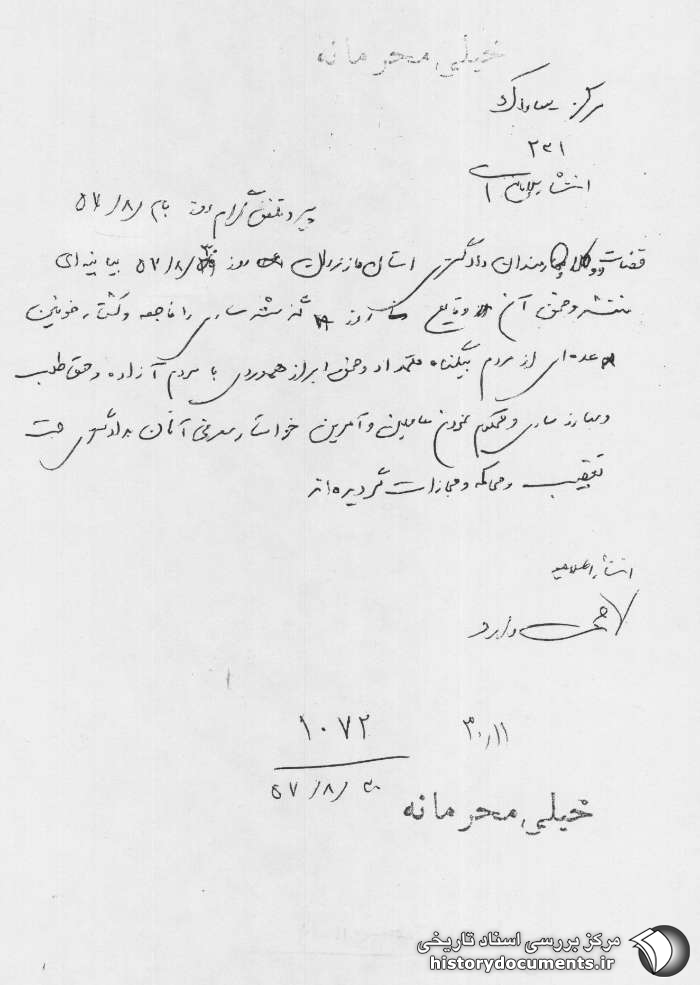 خیلی محرمانه
مرکز ساواک
۲۳۱
پیرو تلفنگرام روز ۵۷/۸/
قضات و وکلا و کارمندان دادگستری استان مازندران روز ۵۷/۸/ بیانیه‌ای
منتشر و ضمن آن وقایع روز گذشته ساری را فاجعه و کشتار خونین
عده‌ای از مردم بیگناه قلمداد و ضمن ابراز همدردی با مردم آزاده و حق طلب
و مبارز ساری و محکوم نمودن عاملین و آمرین خواستار معرفی آنان به دادگستری جهت
تعقیب و محاکمه و مجازات گردیده‌اند
انتشار اعلامیه
۱۰۷۲
۵۷/۸/۳۰
خیلی محرمانه
مرکز بررسی اسناد تاریخی
historydocuments.ir